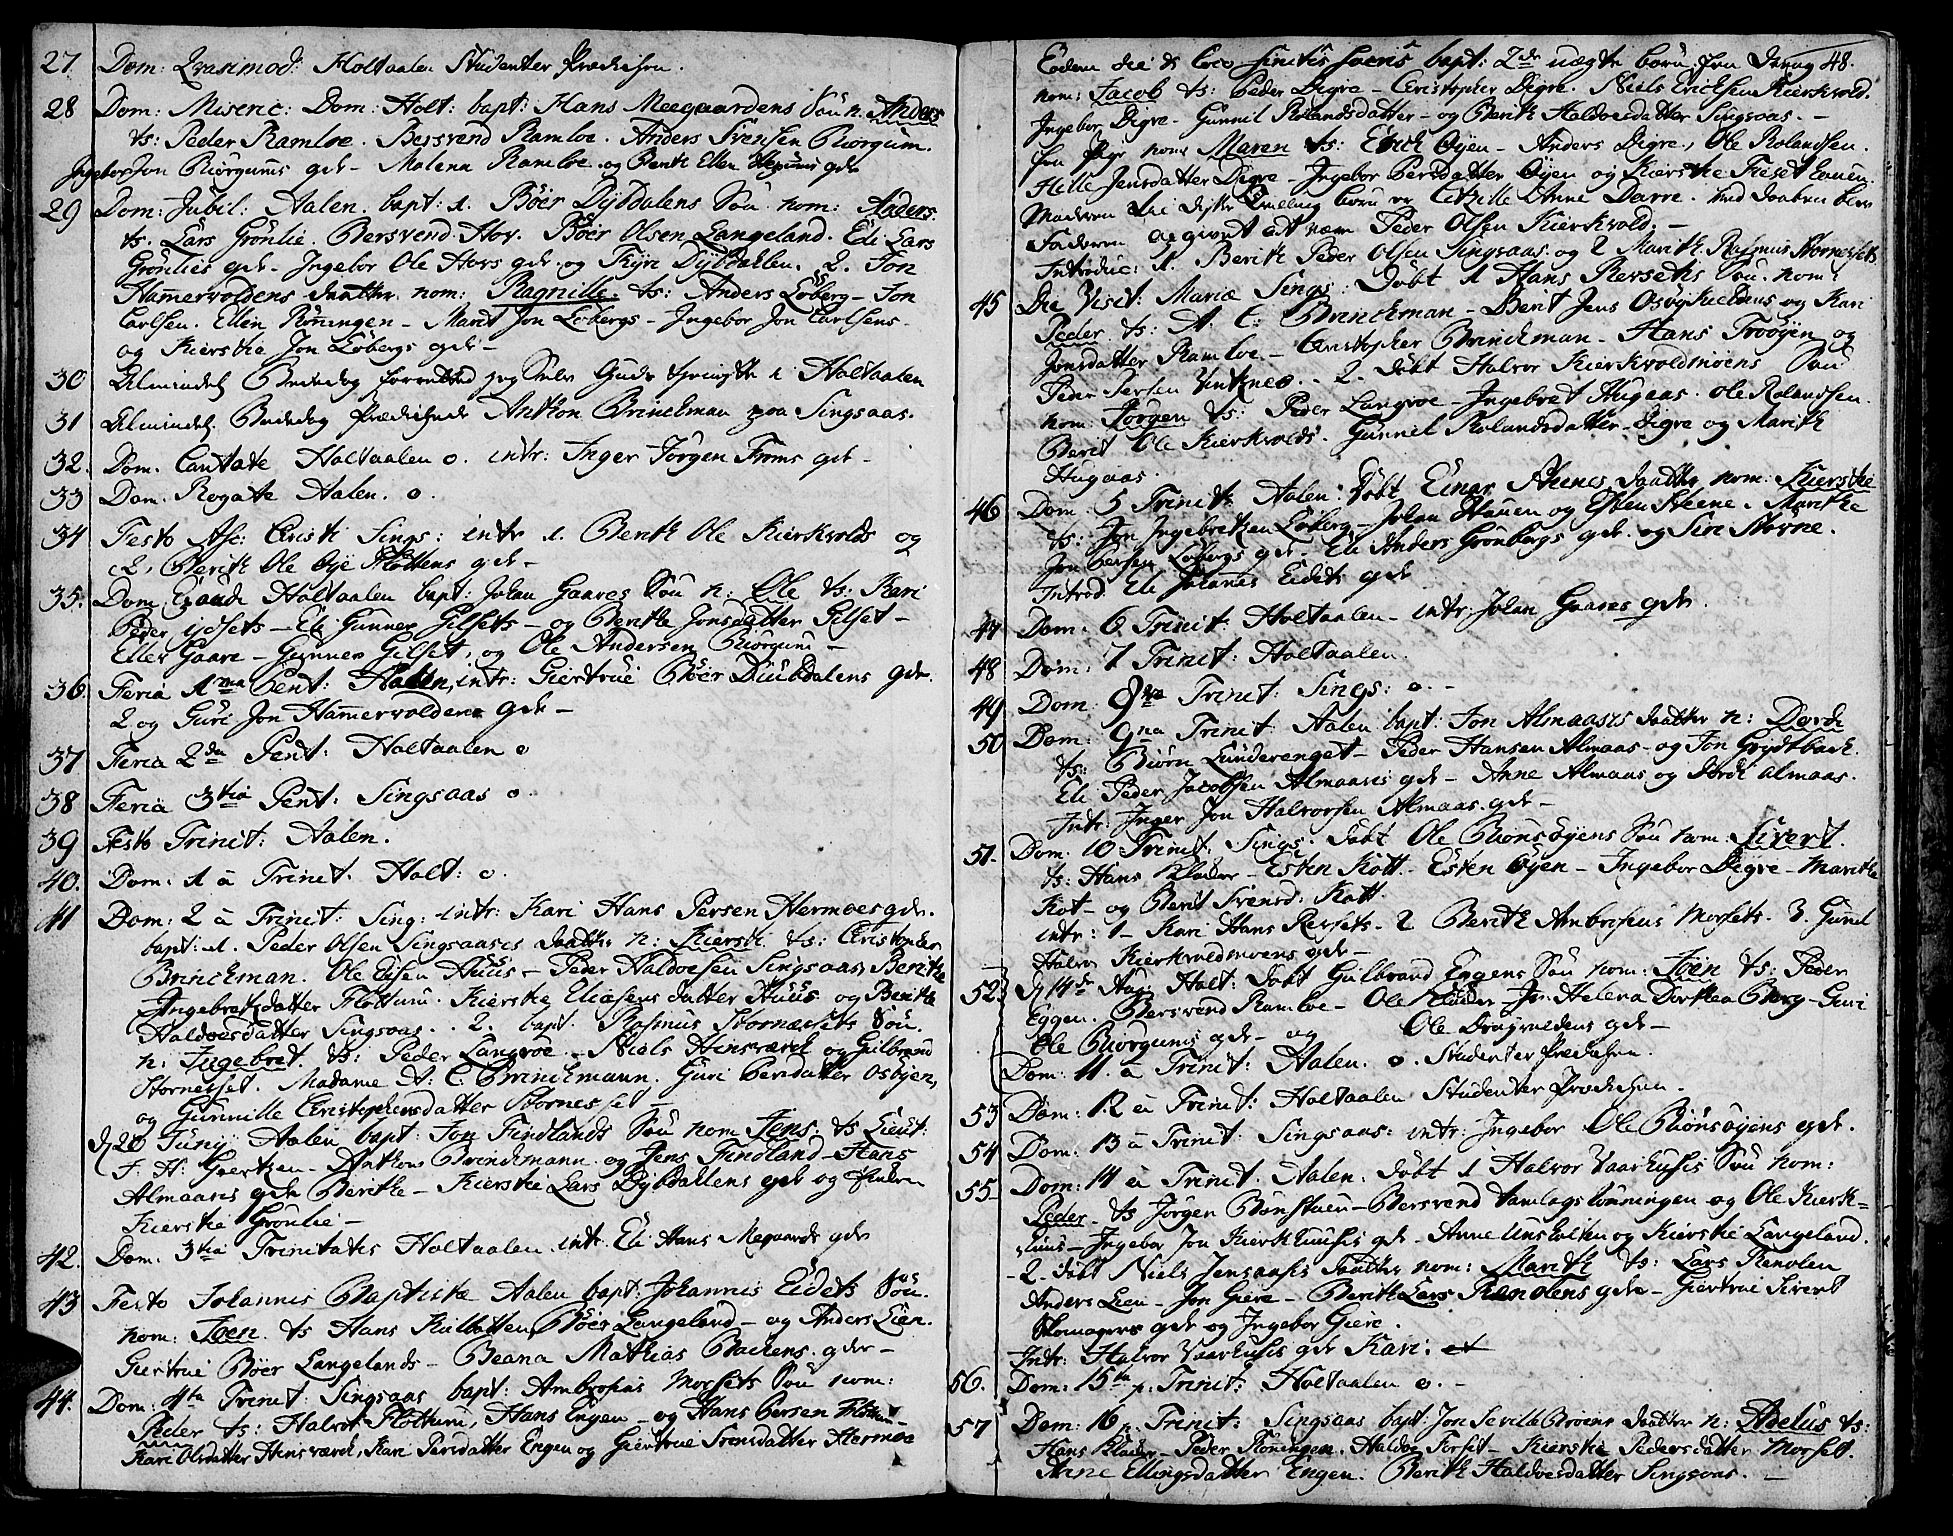 27 Dom: Qvasimod: Holtaalen Studenter Prædichen.
28 Dom: Miseric: Dom: Holt: bapt: Hans Meegaardens Søn n. Anders
ts: Peder Ramloe. Bersvend Ramloe. Anders Svensen Biørgum.
Ingebor Jon Biørgums qde - Malena Ramloe og Berit Ellen qde
29 Dom: Jubil: Aalen. bapt: 1. Böer Dÿbdalens Søn nom: Anders.
ts. Lars Grönlie. Bersvend Hov. Böer Olsen Langeland. Eli Lars
Grönlies qde - Ingebor Ole Hovs qde og Dÿbdahlen. 2. Jon
Hamervoldens daatter nom: Ragnille. ts: Anders Löberg - Jon
Carlsen. Ellen Röningen - Marit Jon Löbergs - Ingebor Jon Carlsens -
og Kierstie Jon Löbergs qde -
30 Almindel: Bededag forretted Guds tieniste i Holtaalen
31 Almindel. Bededag prædikede Anthon Brinckman paa Singsaas.
32. Dom. Cantate Holtaalen o. intr: Inger Jörgen Froms qde -
33 Dom. Rogate Aalen. o.
34 Festo Asc: Christi Sings: intr 1. Berith Ole Kierkvolds og
2, Berith Ole Øye Flottens qde -
35. Dom. Exaudi Holtaalen bapt: Johan Gaares Søn n: Ole ts: Kari
Peder - Eli Gunner Gilsets - og Berithe Jonsdatter Gilset -
Eller Gaare - Gunner Gilset, og Ole Andersen Biörgum -
36. Feria 1ma Pent: Aalen, intr: Giertrue Böer Diubdalens qde.
2 og Guri Jon Hamervoldens qde -
37 Feria 2da Pent: Holtaalen o
38 Feria 3tia Pent: Singsaas o.
39 Festo Trinit: Aalen.
40. Dom: 1 a Trinit. Holt: o.
41 Dom: 2 a Trinit: Sing: intr: Kari Hans Persen Hermoes qde.
bapt: 1. Peder Olsen Singsaases daatter n: Kiersti ts: Christopher
Brinckman. Ole Olsen Huus - Peder Haldoesen Singsaas, Berithe
Ingebretsdatter Flottum. Kierstie Eliasensdatter Huus og Berithe
Haldoesdatter Singsaas. . 2. bapt. Rasmus Stornæsets Søn
n: Ingebret. ts: Peder Langvoe - Niels Hensværck og Gilbrand
Stornesset. Madame A: C. Brinckmann. Guri Persdatter Osøyen,
og Gunnille Christophersdatter Stornesset -
d 20 Junÿ Aalen bapt: Jon Findlands Søn nom Jens. ts Lieut:
F. H: Goertzen - Anthon Brinckmann og Jens Findland - Hans
Almaases qde Berithe - Kierstie Lars Dybdallens qde og
Kierstie Grönlie -
42. Dom. 3tia Trinitatis Holtaalen intr. Eli Hans Megaards qde
43 Festo Johannis Baptistæ Aalen bapt: Johannis Eidets Søn
nom: Joen. ts Hans Kulbotten, Böer Langeland - og Anders Lien.
Giertrue Böer Langelands - Beana Mathias Backens qde -
44. Dom: 4ta Trinit: Singsaas bapt: Ambrosius Morsets Søn nom:
Peder ts: Halvor Flottum, Hans Engen - og Hans Persen
Kari Olsdatter Hensværck, Kari Persdatter Engen og Giertrue Svensdatter Hermoe
48.
Eodem die & loco bapt: 2de uægte börn fra Digre
nom: Jacob ts: Peder Digre - Christopher Digre. Niels Ericksen Kierkvold.
Ingebor Digre. Gunnil Rolandsdatter - og Berith Haldoesdatter Singsaas. -
nom: Maren ts: Erick Öyen - Anders Digre, Ole Rolandsen.
Hille Jensdatter Digre - Ingebor Persdatter Öyen og Kierstie
börn er Citzille Anne Darre.
Faderen at være Peder Olsen Kierkvold. -
Introduc: 1. Berith Peder Olsen Singsaas og 2 Marith Rasmus Stornesets
45 Die Visit: Mariæ Sings: döbt 1 Hans Rersetts Søn. nom:
Peder. ts: A. C: Brinckman - Berit Jens Osøykieldens og Kari
Jonsdatter Ramloe - Christopher Brinckman - Hans Troöyen og
Peder Iversen . 2. döbt Halvor Kierkvoldmoens Søn
nom: Jörgen ts: Peder Langvoe - Ingebret Hugaas. Ole Rolandsen.
Berit Ole Kierkvolds. Gunnil Rolandsdatter Digre og Marith
Hugaas.
46 Dom: 5 Trinit: Aalen: döbt Einer daatter nom: Kierstie
ts: Jon Ingebretsen Löberg - Johan og Esten . Marithe
Jon Persen Löbergs qde. Eli Anders Grönbergs qde. og Siri
Introd: Eli Johanes Eidets qde
47 Dom: 6 Trinit: Holtaalen - intr. Johan Gaares qde.
48 Dom: 7 Trinit: Holtaalen.
49 Dom: Trinit: Sings: o. -
50 Dom: 9na Trinit Aalen bapt: Jon Almaases daatter n: Dordi
ts: Biörn Lunderenget - Peder Hansen Almaas - og Jon Grÿtback.
Eli Peder Jacobsen Almaases qde - Anne Almaas og Dordi Almaas.
Intr: Inger Jon Halvorsen Almaas qde -
51. Dom: 10 Trinit: Sings: döbt Ole Biönsöyens Søn nom: Sivert.
ts: Hans Kladev - Esten Kott - Esten Öyen - Ingebor Digre - Marithe
Kot - og Berit Svensd: Kott
intr: 1 - Kari Hans Rersets. 2 Berith Ambrosius Morsets. 3. Gunil
Halvor Kierkvoldmoens qde -
52. d 14de Aug: Holt: döbt Gulbrand Eggens Søn nom: Joen ts: Peder
Eggen. Bersvend Ramloe - Ole Jfr. Helena Dorthea Berg - Guri
Ole Biörgums qde - og Ole qde -
Dom: 11. a Trinit: Aalen. o. Studenter Prædichen.
53 Dom: 12 a Trinit: Holtaalen Studenter Prædichen.
54 Dom: 13 a Trinit: Singsaas: intr: Ingebor Ole Biönsöyens qde.
55 Dom: 14 a Trinit. Aalen. döbt 1 Halvor Vaarhusis Søn nom:
Peder. ts Jörgen - Bersvend og Ole Kierk=
huus - Ingebor Jon Kierkhusis qde - Anne og Kierstie Langeland.
- 2. döbt Niels Jensaasis daatter nom: Marith ts: Lars Renolen
Anders Lien - Jon Giere - Berith Lars Renolens qde - Giertrue Sivert
qde og Ingebor Giere.
Intr: Halvor Vaarhusis qde Kari.
56. Dom: 15ta p. Trinit: Holtaalen o. -
57 Dom: 16 p. Trinit: Singsaas bapt: Jon daatter n: Adelus ts:
Hans Kladev - Peder Röningen. Haldoe Forset - Kierstie Pedersdatter Morset.
Anne Ellingsdatter Engen. Berith Haldoesdatter Singsaas. -